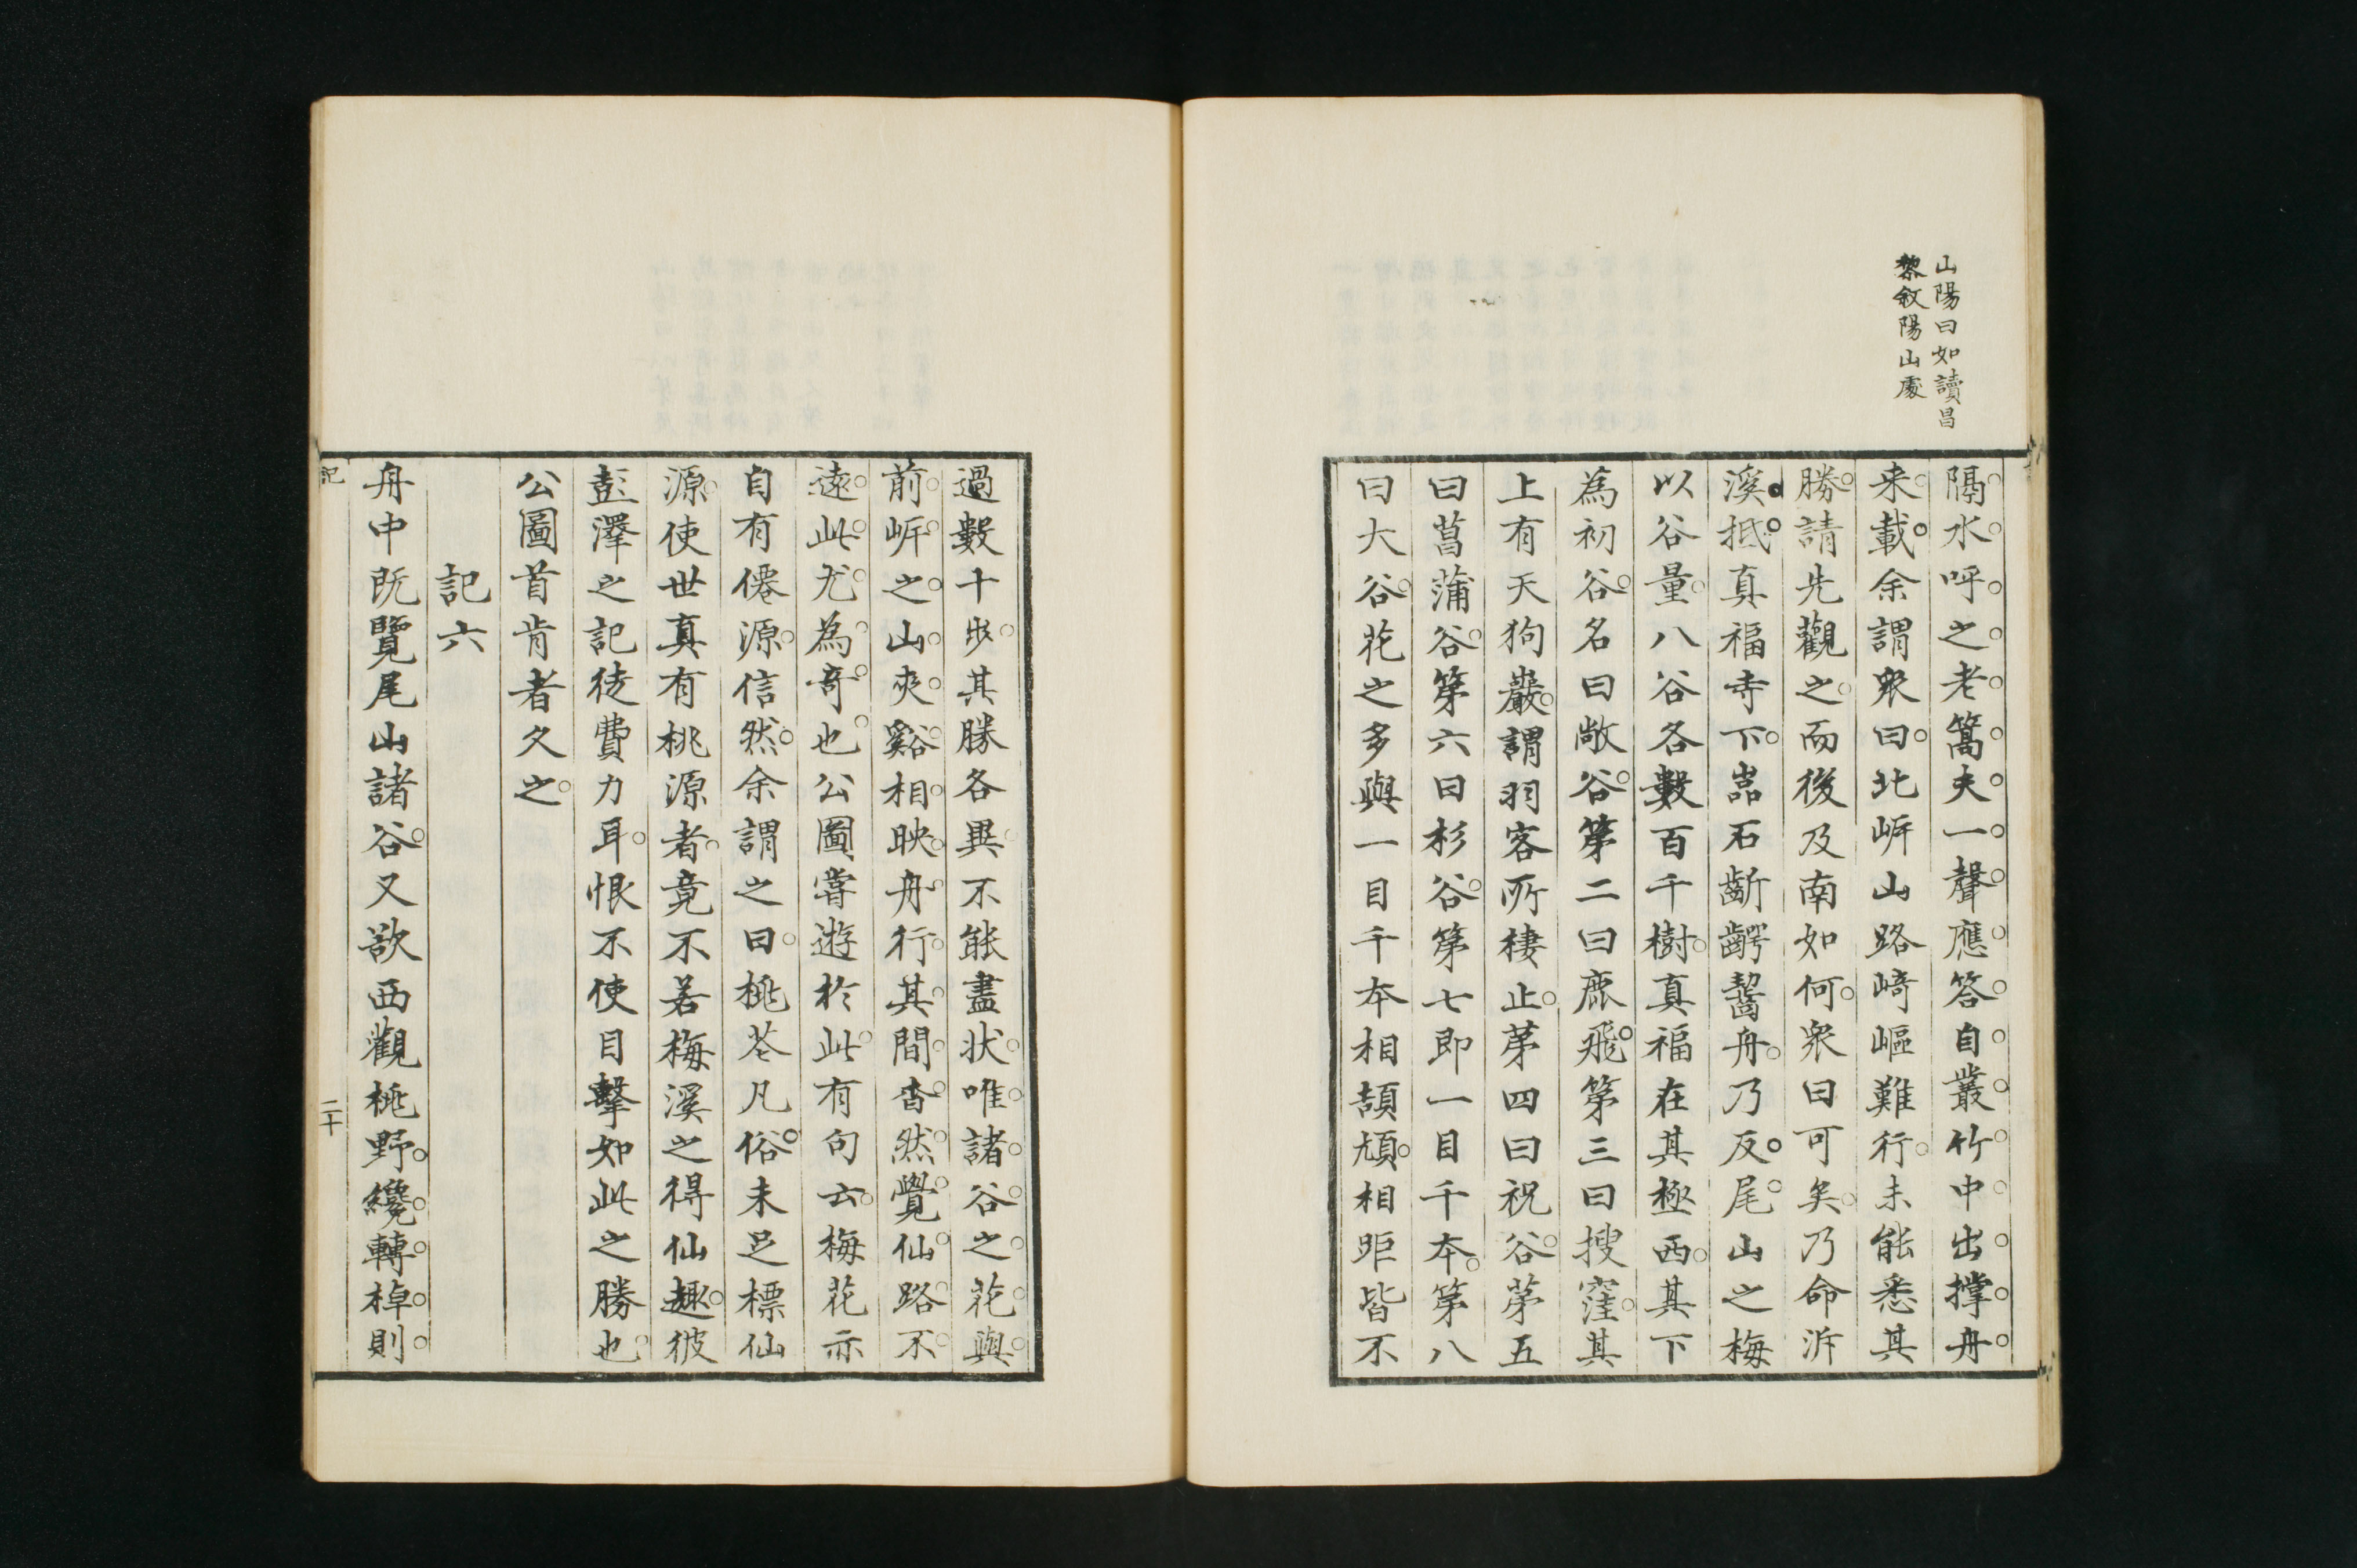 山陽曰如讀昌
黎敘陽山處
隔水呼之老篙夫一聲應答自叢竹中出撑舟
来載余謂衆曰北岍山路﨑嶇難行未能悉其
勝請先觀之而後及南如何衆曰可矣乃命泝
溪抵真福寺下嵓石齗齶齧舟乃反尾山之梅
以谷量八谷各數百千樹真福在其極西其下
為初谷名曰敞谷第二曰鹿飛第三曰搜窪其
上有天狗巖謂羽客所棲止苐四曰祝谷苐五
曰菖蒲谷第六曰杉谷第七即一目千夲第八
曰大谷花之多與一目千夲相頡頏相距皆不
過數十步其勝各異不能盡状唯諸谷之花與
前岍之山夾谿相映舟行其間杳然覺仙路不
遠此尤為奇也公圖嘗遊於此有句云梅花亦
自有僊源信然余謂之曰桃花凡俗未足標仙
源使世真有桃源者竟不若梅溪之得仙趣彼
彭澤之記徒費力耳恨不使目擊如此之勝也
公圖首肯者久之
記六
舟中既覽尾山諸谷又欲西觀桃野纔轉棹則
記
二十